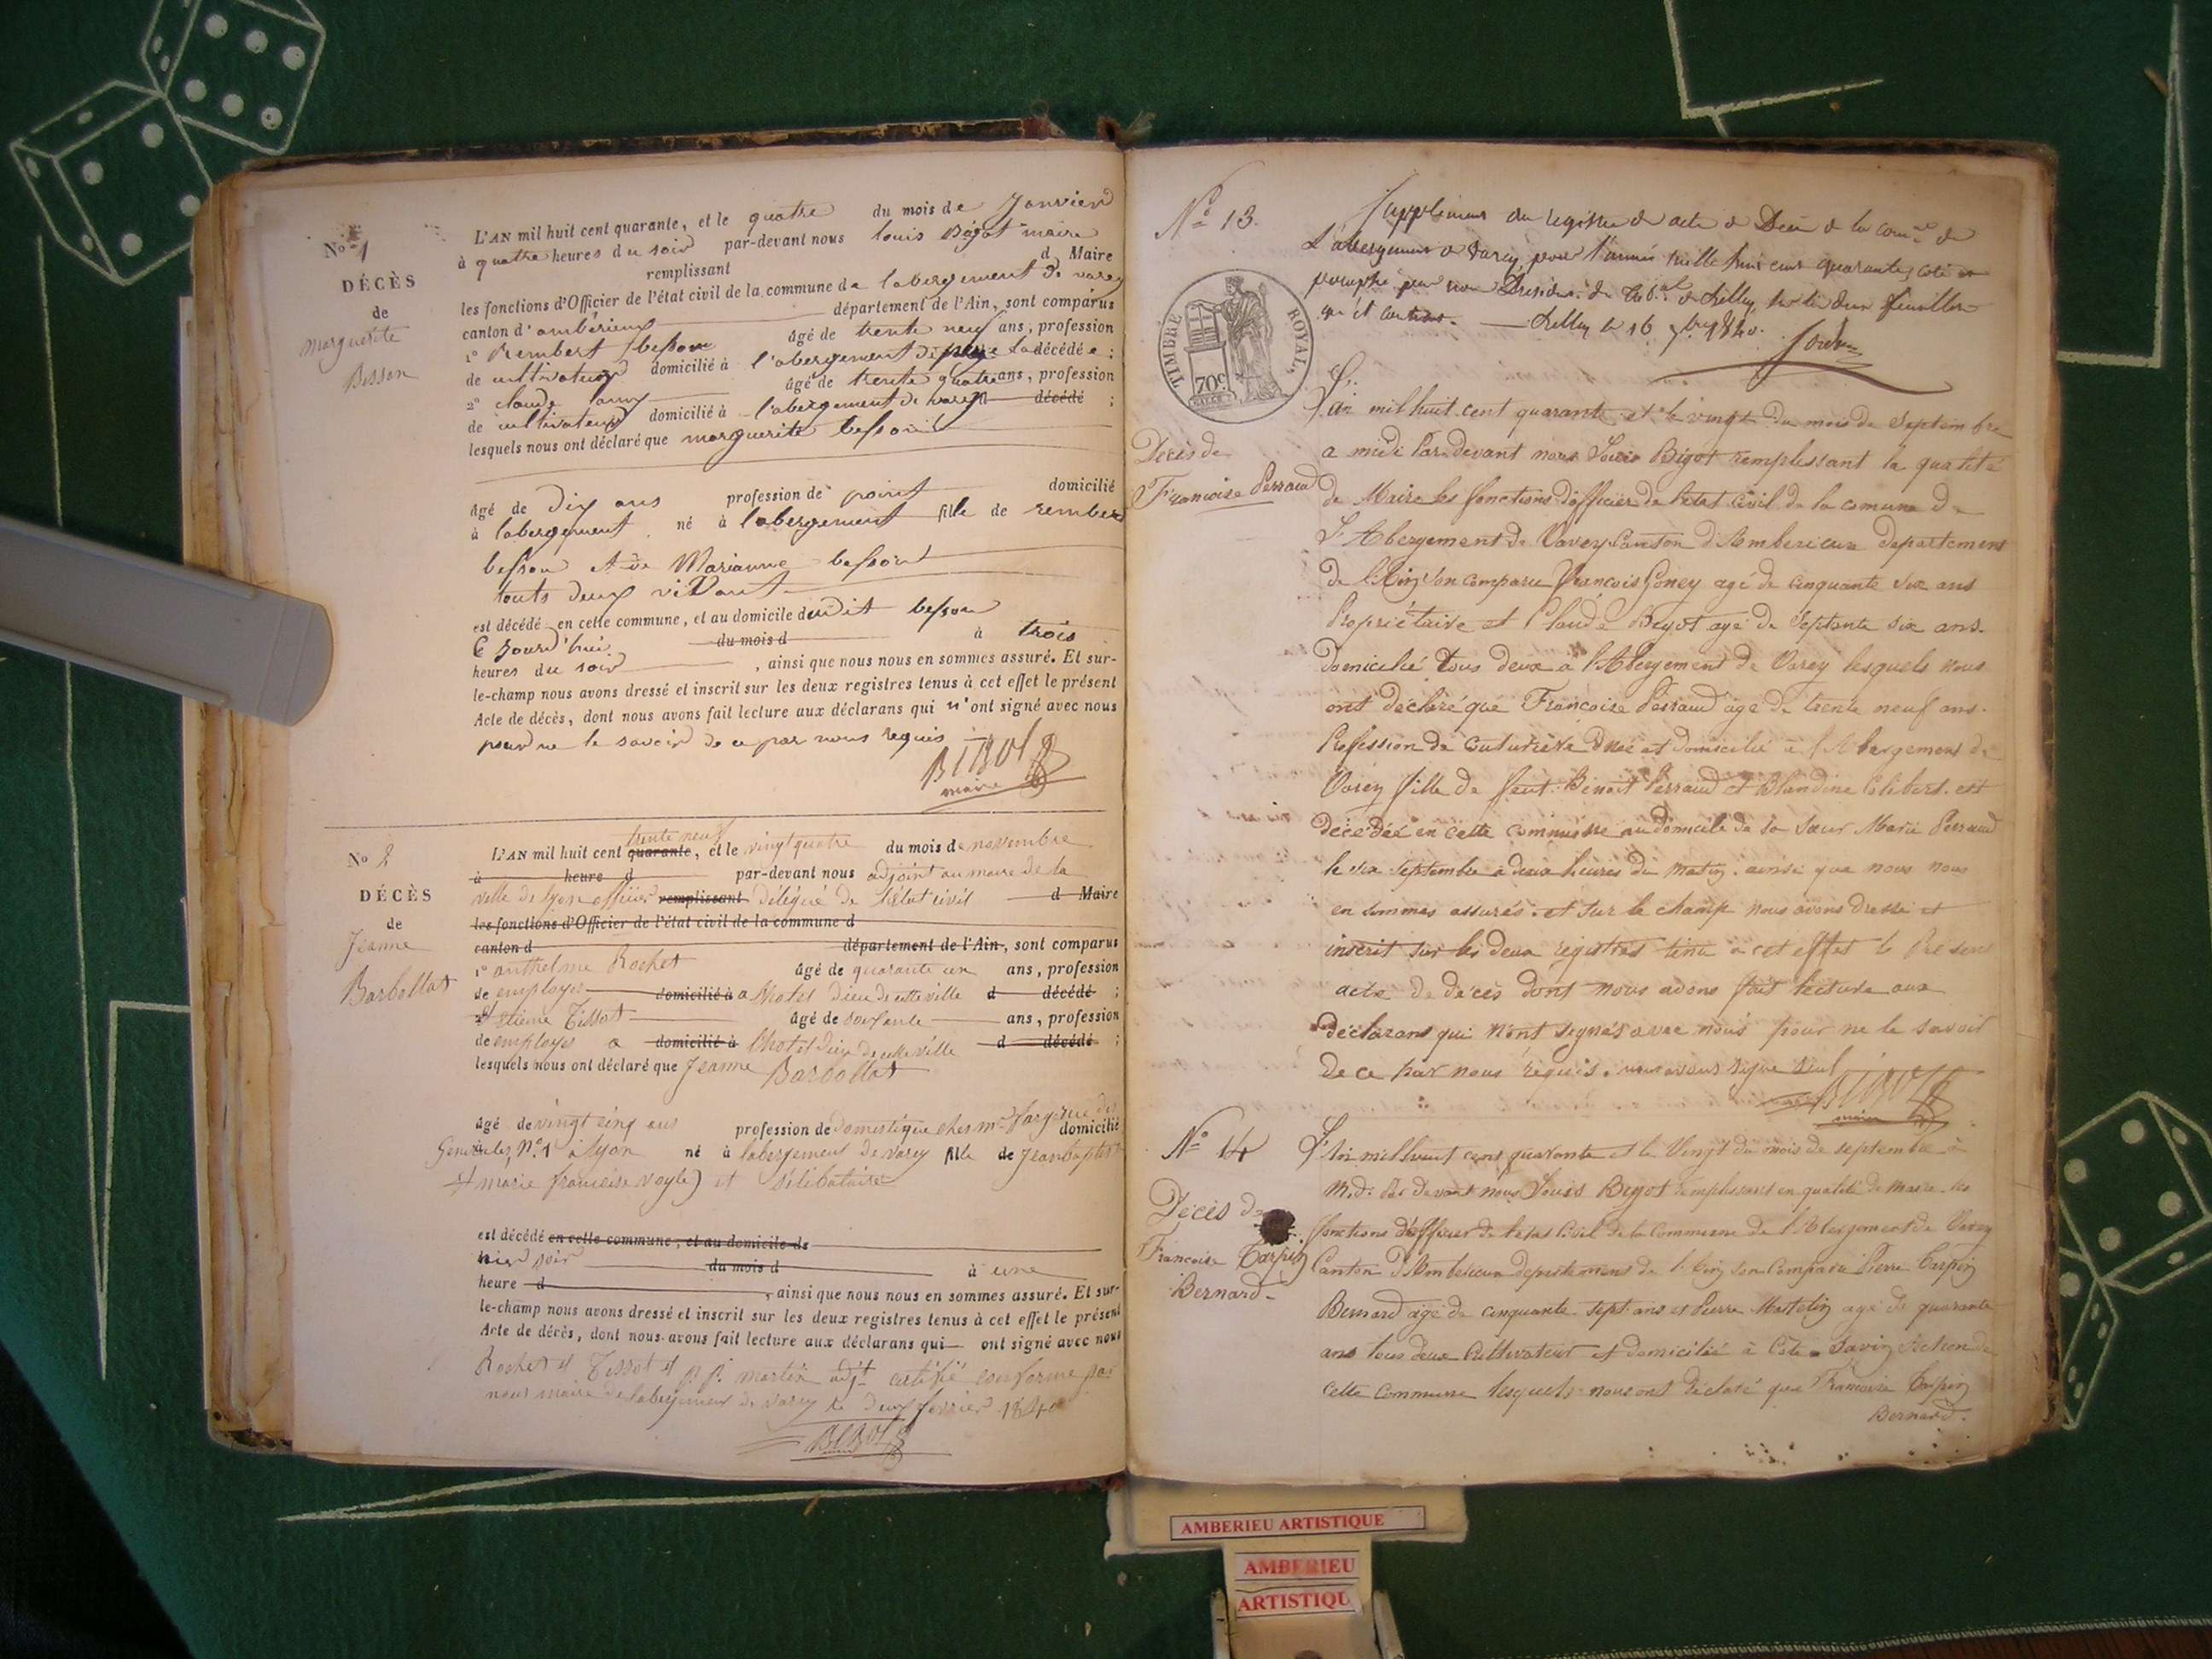 No 1
DÉCÈS
de
marguerite
Besson
L'AN mil huit cent quarante, et le quatre du mois de Janvier
à quatre heures du soir par-devant nous louis Bigot maire
remplissant d Maire
les fonctions d'Officier de l'état civil de la commune de labergement de varey
canton d'ambérieux département de l'Ain, sont comparus
1° Rembert besson âgé de trente neuf ans, profession
de cultivateur domicilié à l'abergement de la décédée ;
2° claude âgé de trente quatre ans, profession
de cultivateur domicilié à l'abergement de varey décédé ;
lesquels nous ont déclaré que marguerite besson
âgé de dix ans profession de point domicilié
à labergement né à labergement fille de rembert
besson et de Marianne besson
touts deux vivant
est décédé en cette commune, et au domicile dudit besson
ce jourd'hui du mois d à trois
heures du soir, ainsi que nous nous en sommes assuré. Et sur-
le-champ nous avons dressé et inscrit sur les deux registres tenus à cet effet le présent
Acte de décès, dont nous avons fait lecture aux déclarans qui n'ont signé avec nous
pour ne le savoir de ce par nous requis
BIGOT
maire
No 2
DÉCÈS
de
Jeanne
Barbollat
trente neuf
L'AN mil huit cent quarante, et le vingt quatre du mois de novembre
à heure d par-devant nous adjoint au maire de la
ville de lyon officier remplissant délégué de l'état civil d Maire
les fonctions d'Officier de l'état civil de la commune d
canton d département de l'Ain, sont comparus
1° anthelme Rochet âgé de quarante un ans, profession
de employé domicilié à a lhotel dieu de cette ville d décédé ;
2° etiene Tissot âgé de soixante ans, profession
de employé a domicilié à lhotel dieu de cette ville d décédé ;
lesquels nous ont déclaré que Jeanne Barbollat
âgé de vingt cinq ans profession de domestique chez mr rue des domicilié
à N° 1 à lyon né à labergement de varey fille de Jean baptiste
et marie françoise et célibataire
est décédé en cette commune, et au domicile de
hier soir du mois d à une
heure d, ainsi que nous nous en sommes assuré. Et sur-
le-champ nous avons dressé et inscrit sur les deux registres tenus à cet effet le présent
Acte de décès, dont nous avons fait lecture aux déclarans qui ont signé avec nous
Rochet et Tissot et martin adjt certifié conforme par
nous maire de labergement de varey le deux fevrier 1840
BIGOT
N° 13.
Supplément au registre de acte de Décès de la comne de
L'abergement de Varey pour l'année mille huit cent quarante, coté et
paraphé par nous Président du de Belley, deux feuilles
Belley le 16 7bre 1840.
TIMBRE ROYAL
70c
Décès de
Francoise Perraud
L'an mil huit cent quarante et le vingt du mois de Septembre
a midi Par devant nous Louis Bigot remplissant la qualité
de Maire les fonctions d'officier de l'état civil de la comune de
L'Abergement de Varey Canton d'Amberieux departement
de l'Ain son comparu François Goney agé de cinquante six ans
Propriétaire et Claude Bigot agé de Septante six ans.
domicilié tous deux a l'Abergement de Varey lesquels nous
ont déclaré que Françoise Perraud agé de trente neuf ans.
Profession de Couturière née et domicilié à l'Abergement de
Varey fille de feut Benoit Perraud et Blandine est
décédée en cette commune au domicile de sa sœur Marie Perraud
le six septembre a deux heures du matin. ainsi que nous nous
en sommes assurés. et sur le champ nous avons dressé et
inscrit sur les deux registres tenu à cet effet le Présent
acte de décès dont nous avons fait lecture aux
déclarans qui n'ont signés avec nous pour ne le savoir
de ce par nous requis. nous avons signe seul
BIGOT
maire
N° 14
Décès de
Francoise Carpin
Bernard
L'An mil huit cent quarante et le Vingt du mois de septembre à
Midi Par devant nous Louis Bigot remplissant en qualité de Maire les
fonctions d'officier de l'état Civil de la Commune de l'Abergement de Varey
Canton D'Amberieux departement de l'Ain son Comparu Pierre Carpin
Bernard agé de cinquante sept ans et Pierre Matelin agé de quarante
ans tous deux Cultivateur et domicilié à Cote Savin section de
cette Commune lesquels nous ont déclaré que Francoise Carpin
Bernard.
AMBERIEU ARTISTIQUE
AMBERIEU
ARTISTIQU